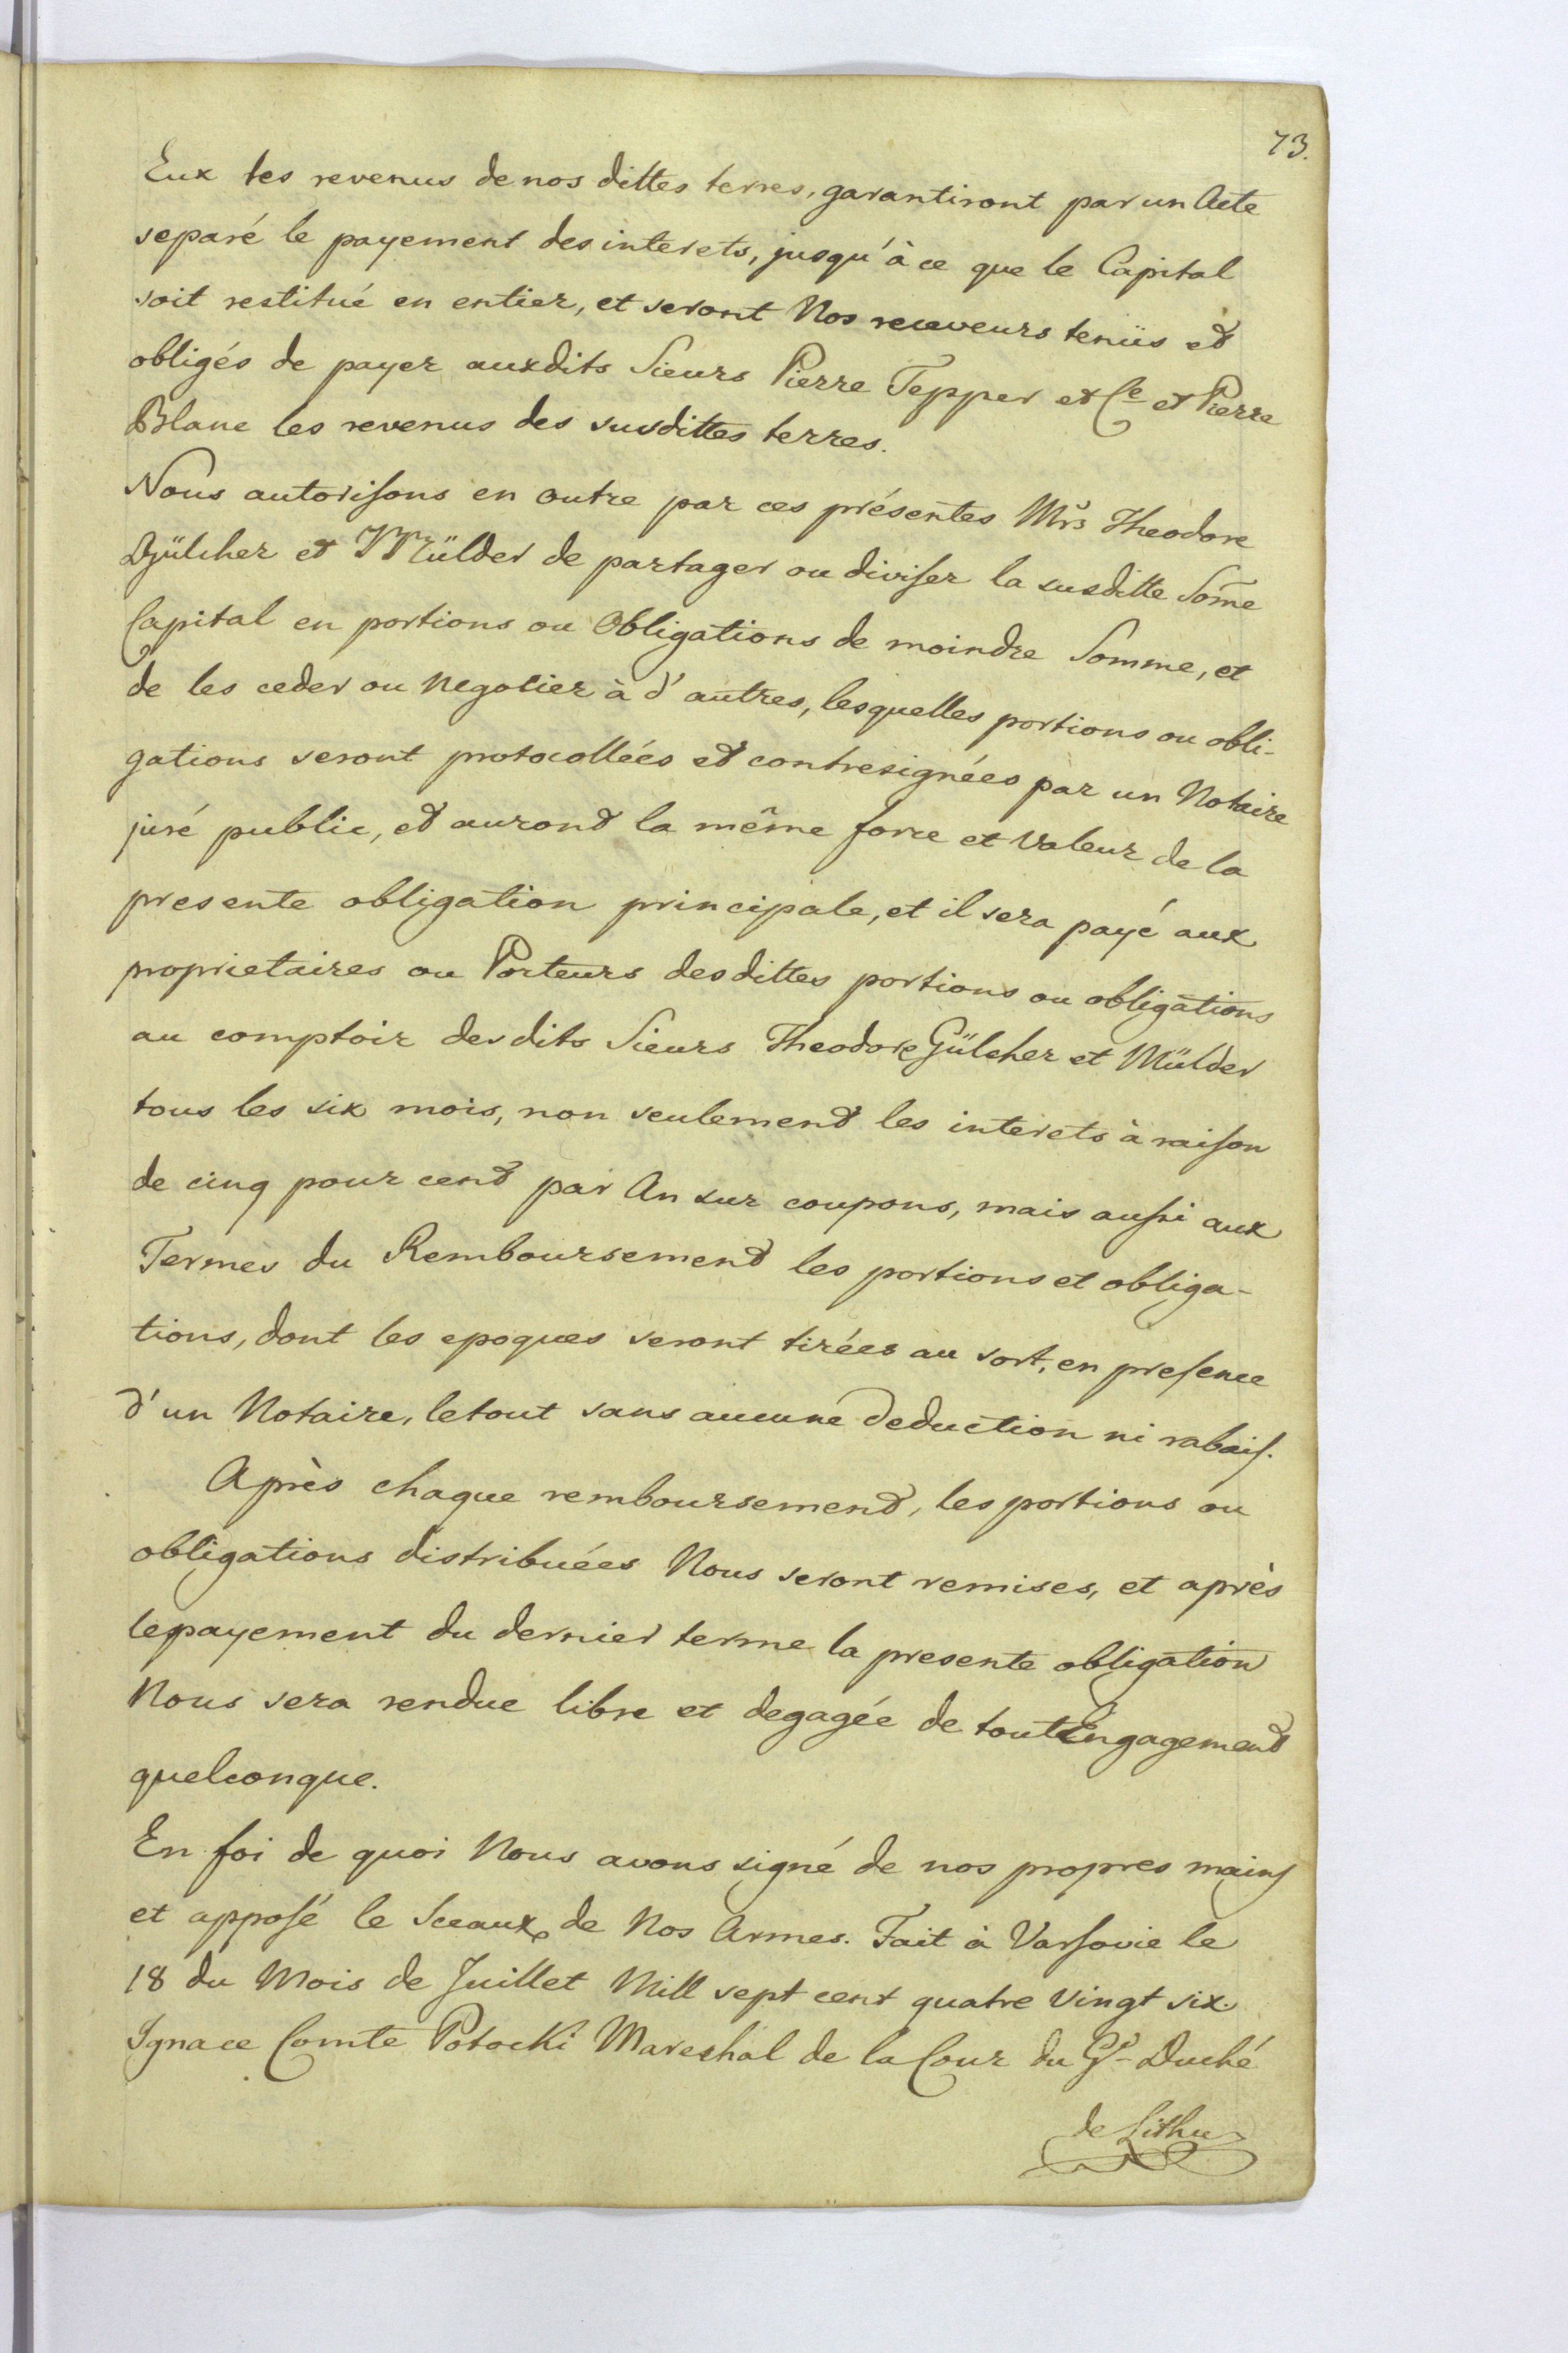 73.
Eux les revenus de nos dittes terres, garantiront par un Acte
separé le payement des interets, jusqu'à ce que le Capital
soit restitué en entier, et seront Nos receveurs tenüs et
obligés de payer auxdits Sieurs Pierre Tepper et Ce et Pierre
Blanc les revenus des susdittes terres.
Nous autorisons en outre par ces présentes Mrs Theodore
Gülcher et Mülder de partager ou diviser la susditte Som̄e
Capital en portions ou Obligations de moindre Somme, et
de les ceder ou Negotier à d'autres, lesquelles portions ou obli-
gations seront protocollées et contresignées par un Notaire
juré public, et auront la même force et Valeur de la
presente obligation principale, et il sera payé aux
proprietaires ou Porteurs desdittes portions ou obligations
au comptoir desdits Sieurs Theodore Gülcher et Mülder
tous les six mois, non seulement les interets à raison
de cinq pour cent par An sur coupons, mais aussi aux
Termes du Remboursement les portions et obliga-
tions, dont les epoques seront tirées au sort, en presence
d'un Notaire, le tout sans aucune deduction ni rabais.
Après chaque remboursement, les portions ou
obligations distribuées Nous seront remises, et après
le payement du dernier terme la presente obligation
Nous sera rendue libre et degagée de tout Engagement
quelconque.
En foi de quoi Nous avons signé de nos propres mains
et apposé le Sceaux de Nos Armes. Fait à Varsovie le
18 du Mois de Juillet Mill sept cent quatre Vingt six.
Ignace Comte Potocki Mareshal de la Cour du Gd Duché
de Lithu